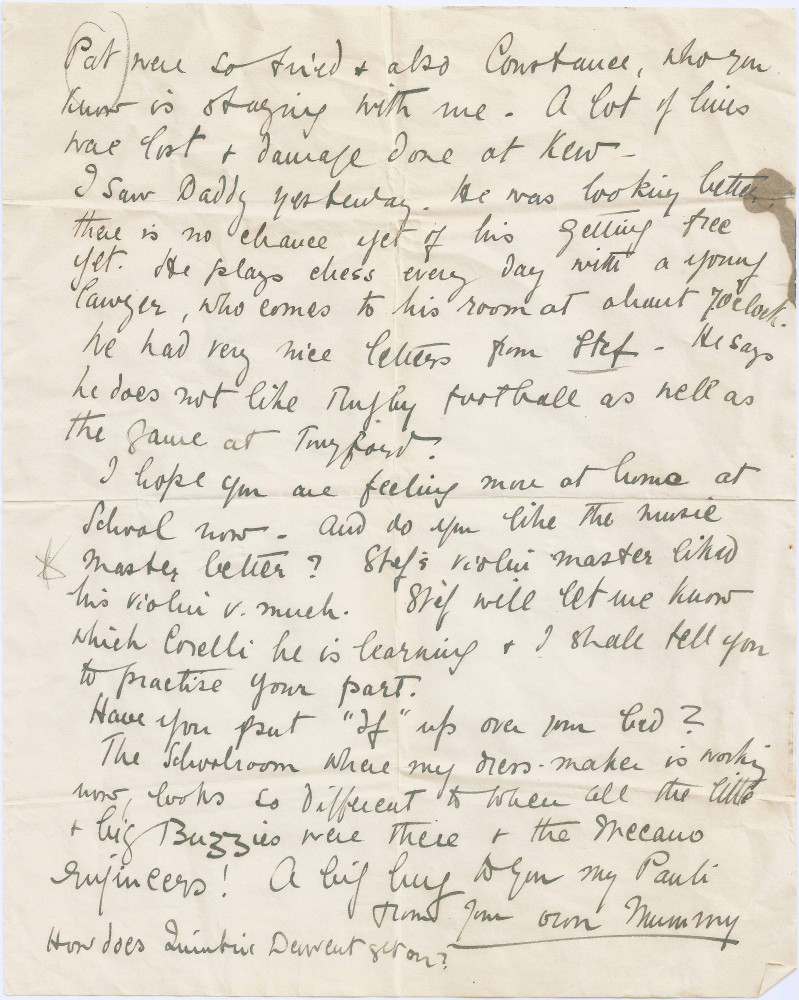 Pat were so tried & also Constance, who you
know is staying with me - A lot of lives
were lost & damage done at Kew -
I saw Daddy yesterday. He was looking better,
there is no chance yet of his getting free
yet. He plays chess every day with a young
lawyer, who comes to his room at about 7 o'clock.
he had very nice letters from Stef - He says
he does not like Rugby football as well as
the game at Twyford.
I hope you are feeling more at home at
School now - And do you like the music
master better? Stef's violin master liked
his violin v. much. Stef will let me know
which Corelli he is learning & I shall tell you
to practise your part.
Have you put "If" up over your bed?
The Schoolroom where my dress-maker is working
now, looks so different to when all the little
& big Buzzies were there & the Meccano
engineers! A big hug to you my Pauli
from your own Mummy
How does Quintin Derwent get on?